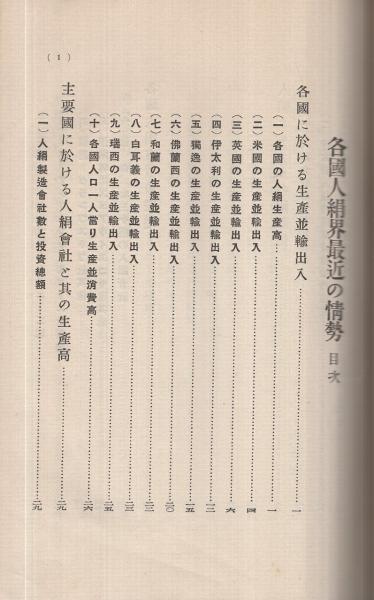 各國人絹界最近の情勢 目次
各國に於ける生產並輸出入…………一
(一) 各國の人絹生產高…………一
(二) 米國の生產並輸出入…………四
(三) 英國の生產並輸出入…………六
(四) 伊太利の生產並輸出入…………一二
(五) 獨逸の生產並輸出入…………一五
(六) 佛蘭西の生產並輸出入…………二〇
(七) 和蘭の生產並輸出入…………二二
(八) 白耳義の生產並輸出入…………二三
(九) 瑞西の生產並輸出入…………二五
(十) 各國人口一人當り生產並消費高…………二六
主要國に於ける人絹會社と其の生產高…………二九
(一) 人絹製造會社數と投資總額…………二九
( 1 )